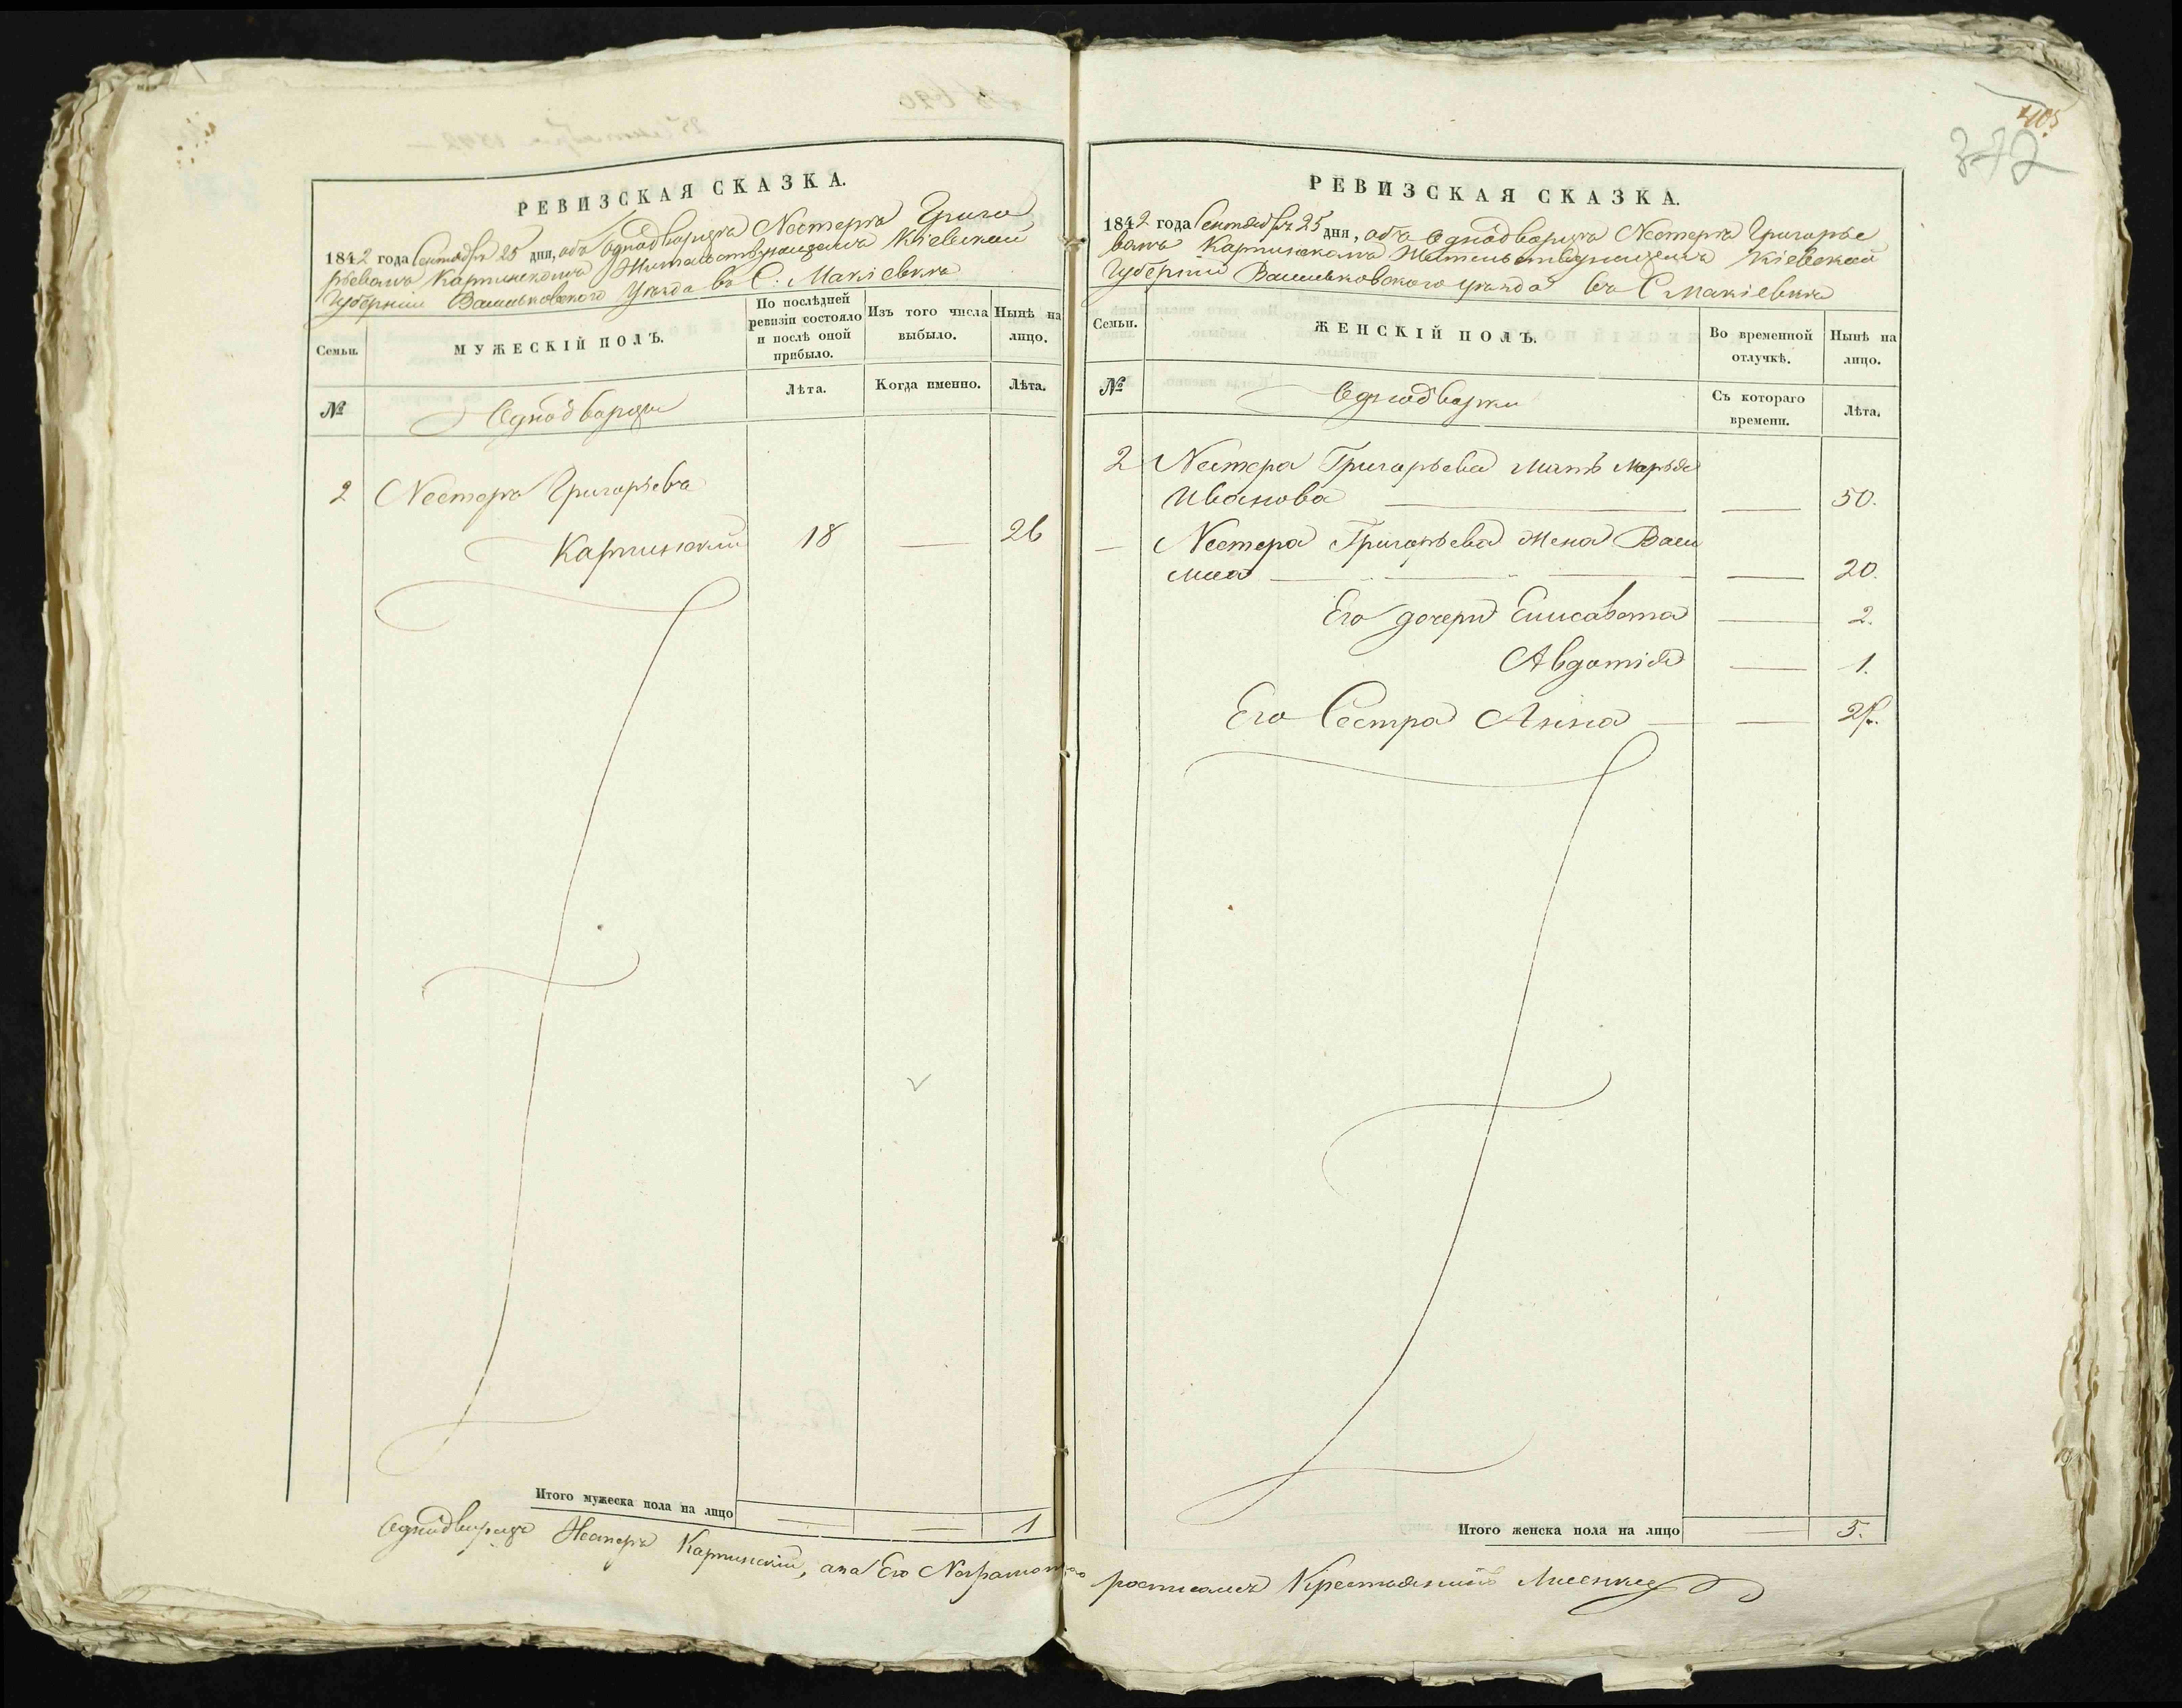 РЕВИЗСКАЯ СКАЗКА.
1842 года Сентября 25 дня, объ однодворцѣ Нестерѣ Григо
рьевомъ Карпинскомъ Жительствующемъ Кіевской
Губерніи Васильковского уѣзда въ С. Макіевкѣ
Семьи.
МУЖЕСКІЙ ПОЛЪ.
По послѣдней ревизіи состояло и послѣ оной прибыло.
Изъ того числа выбыло.
Нынѣ на лицо.
№
Однодворцы
Лѣта.
Когда именно.
Лѣта.
2 Нестеръ Григорьевъ
Карпинскій 18 — 26
Итого мужеска пола на лицо — — 1
РЕВИЗСКАЯ СКАЗКА.
1842 года Сентября 25 дня, объ Однодворцѣ Нестерѣ Григорье
вомъ Карпинскомъ Жительствующемъ Кіевской
Губерніи Васильковского уѣзда въ С Макіевкѣ
Семьи.
ЖЕНСКІЙ ПОЛЪ.
Во временной отлучкѣ.
Нынѣ на лицо.
№
Однодворки
Съ котораго времени.
Лѣта.
2 Нестера Григорьева мать Марья
Иванова — 50.
— Нестера Григорьева жена Васи
лиса — 20.
Его дочери Елисавета — 2.
Авдотія — 1.
Его Сестра Анна —
Итого женска пола на лицо — 5.
Однодворецъ Нестеръ Карпинскій, а за Его Неграмотного росписался Крестьянинъ
372
405